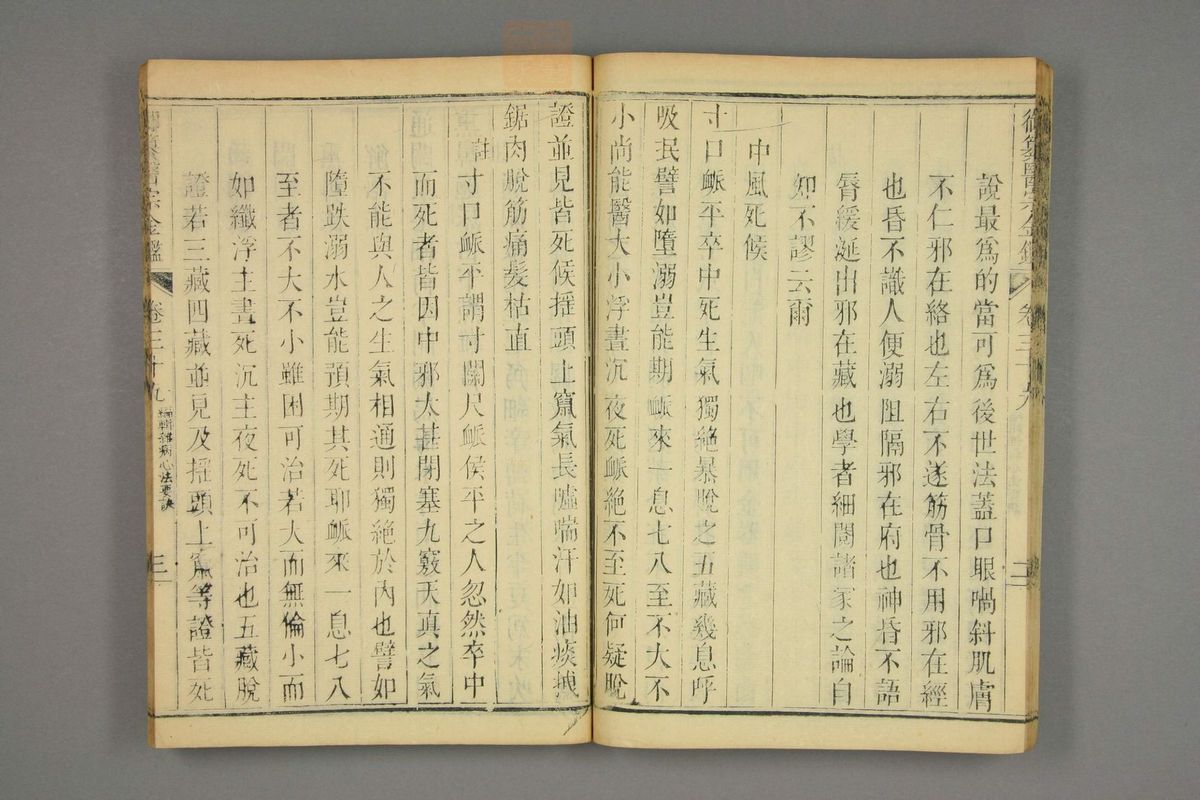 御纂醫宗金鑑 卷三十九 二
說最爲的當可爲後世法蓋口眼喎斜肌膚
不仁邪在絡也左右不遂筋骨不用邪在經
也昏不識人便溺阻隔邪在府也神昏不語
脣緩涎出邪在藏也學者細閱諸家之論自
知不謬云爾
中風死候
寸口䘑平卒中死生氣獨絶暴脫之五藏幾息呼
吸泯譬如墮溺豈能期䘑來一息七八至不大不
小尚能醫大小浮晝沉夜死䘑絶不至死何疑脫
證並見皆死候摇頭上竄氣長噓喘汗如油痰拽
鋸肉脫筋痛髮枯直
註寸口䘑平謂寸關尺䘑侯平之人忽然卒中
而死者皆因中邪太甚閉塞九竅天真之氣
不能與人之生氣相通則獨絶於內也譬如
墮跌溺水豈能預期其死耶䘑來一息七八
至者不大不小雖困可治若大而無倫小而
如纖浮主晝死沉主夜死不可治也五藏脫
證若三藏四藏並見及摇頭上竄等證皆死
御纂醫宗金鑑 卷三十九 編輯雜病心法要訣 三